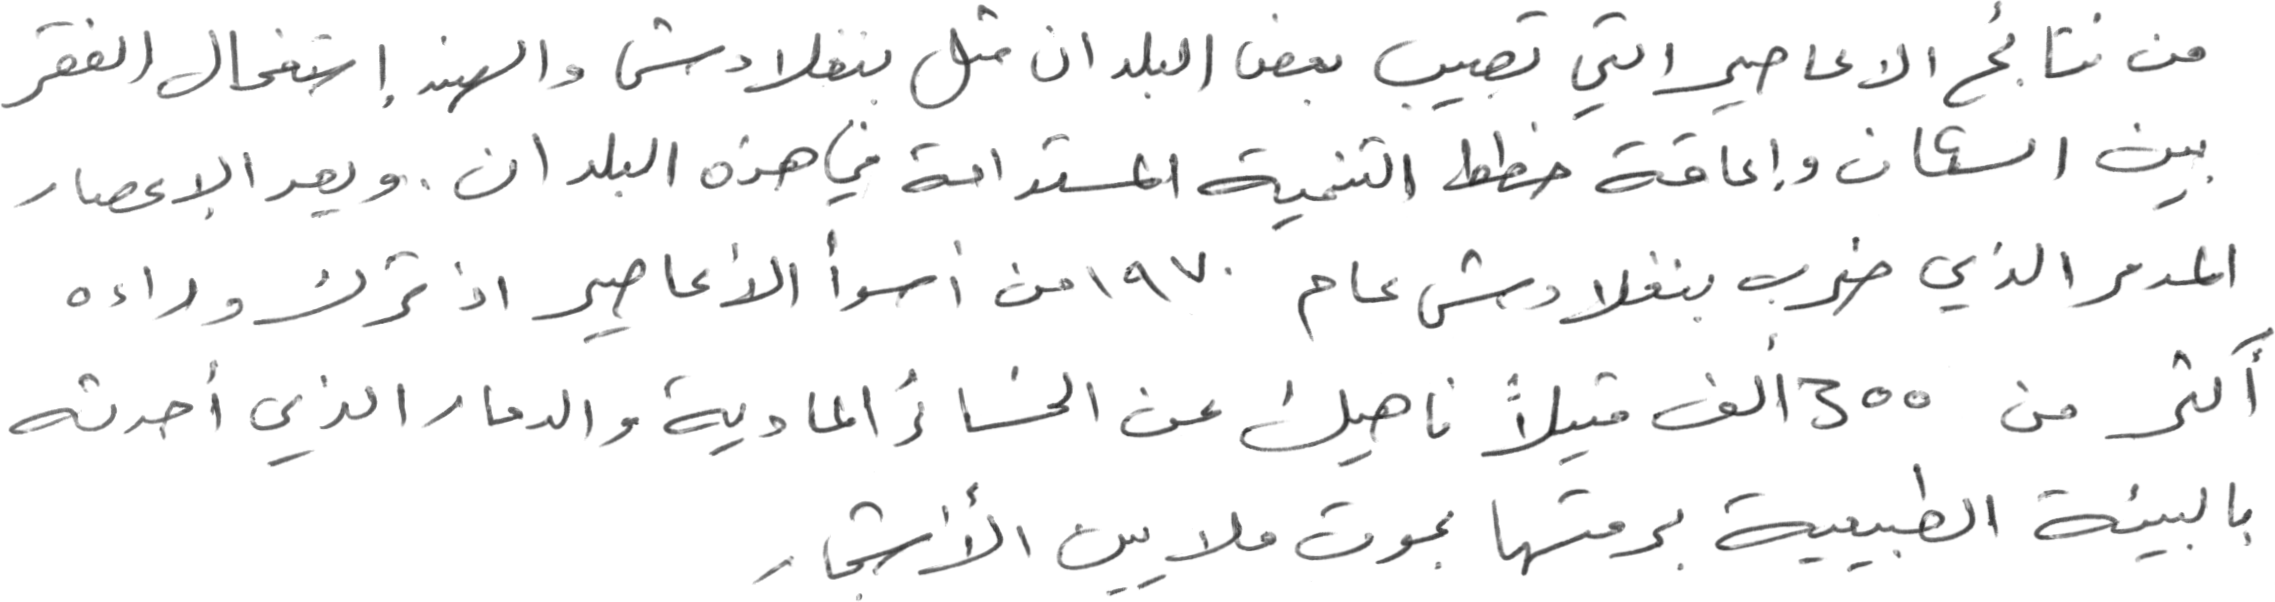 من نتائج الاعاصير التي تصيب بعض البلدان مثل بنغلادش والهند إستفحال الفقر
بين السكان وإعاقة خطط التنمية المستدامة في هذه البلدان. ويعد الإعصار
المدمر الذي ضرب بنغلادش عام ١٩٧٠ من أسوأ الأعاصير اذ ترك وراءه
أكثر من 300 ألف قتيلاً ناهيك عن الخسائر المادية والدمار الذي أحدثه
بالبيئة الطبيعية برمتها بموت ملايين الأشجار